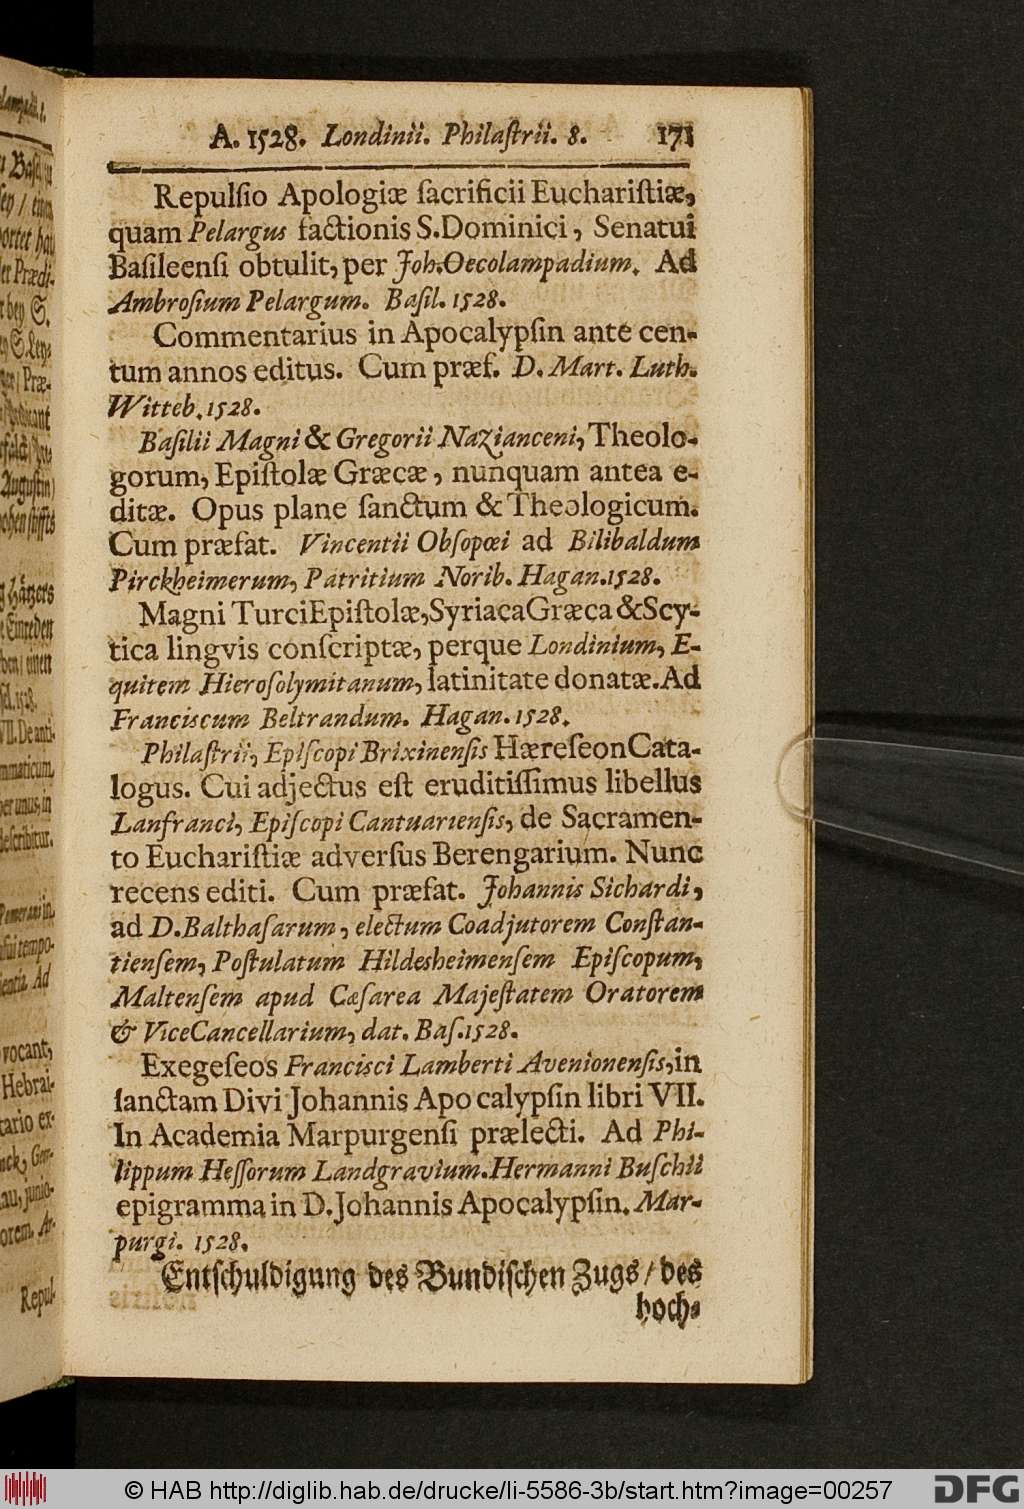 A. 1528. Londinii. Philaſtrii. 8. 171
Repulſio Apologiæ ſacrificii Euchariſtiæ,
quam Pelargus factionis S. Dominici, Senatui
Baſileenſi obtulit, per Joh. Oecolampadium. Ad
Ambroſium Pelargum. Baſil. 1528.
Commentarius in Apocalypſin ante cen-
tum annos editus. Cum præf. D. Mart. Luth.
Witteb. 1528.
Baſilii Magni & Gregorii Nazianceni, Theolo-
gorum, Epiſtolæ Græcæ, nunquam antea e-
ditæ. Opus plane ſanctum & Theologicum.
Cum præfat. Vincentii Obſopœi ad Bilibaldum
Pirckheimerum, Patritium Norib. Hagan. 1528.
Magni Turci Epiſtolæ, Syriaca Græca & Scy-
tica lingvis conſcriptæ, perque Londinium, E-
quitem Hieroſolymitanum, latinitate donatæ. Ad
Franciscum Beltrandum. Hagan. 1528.
Philaſtrii, Epiſcopi Brixinenſis Hæreſeon Cata-
logus. Cui adjectus eſt eruditiſſimus libellus
Lanfranci, Epiſcopi Cantuarienſis, de Sacramen-
to Euchariſtiæ adverſus Berengarium. Nunc
recens editi. Cum præfat. Johannis Sichardi,
ad D. Balthaſarum, electum Coadjutorem Conſtan-
tienſem, Poſtulatum Hildesheimenſem Epiſcopum,
Maltenſem apud Cæſarea Majeſtatem Oratorem
& ViceCancellarium, dat. Baſ. 1528.
Exegeſeos Franciſci Lamberti Avenionenſis, in
ſanctam Divi Johannis Apocalypſin libri VII.
In Academia Marpurgenſi prælecti. Ad Phi-
lippum Heſſorum Landgravium. Hermanni Buſchii
epigramma in D. Johannis Apocalypſin. Mar-
purgi. 1528.
Entſchuldigung des Bundiſchen Zugs / des
hoch-
© HAB http://diglib.hab.de/drucke/li-5586-3b/start.htm?image=00257
DFG